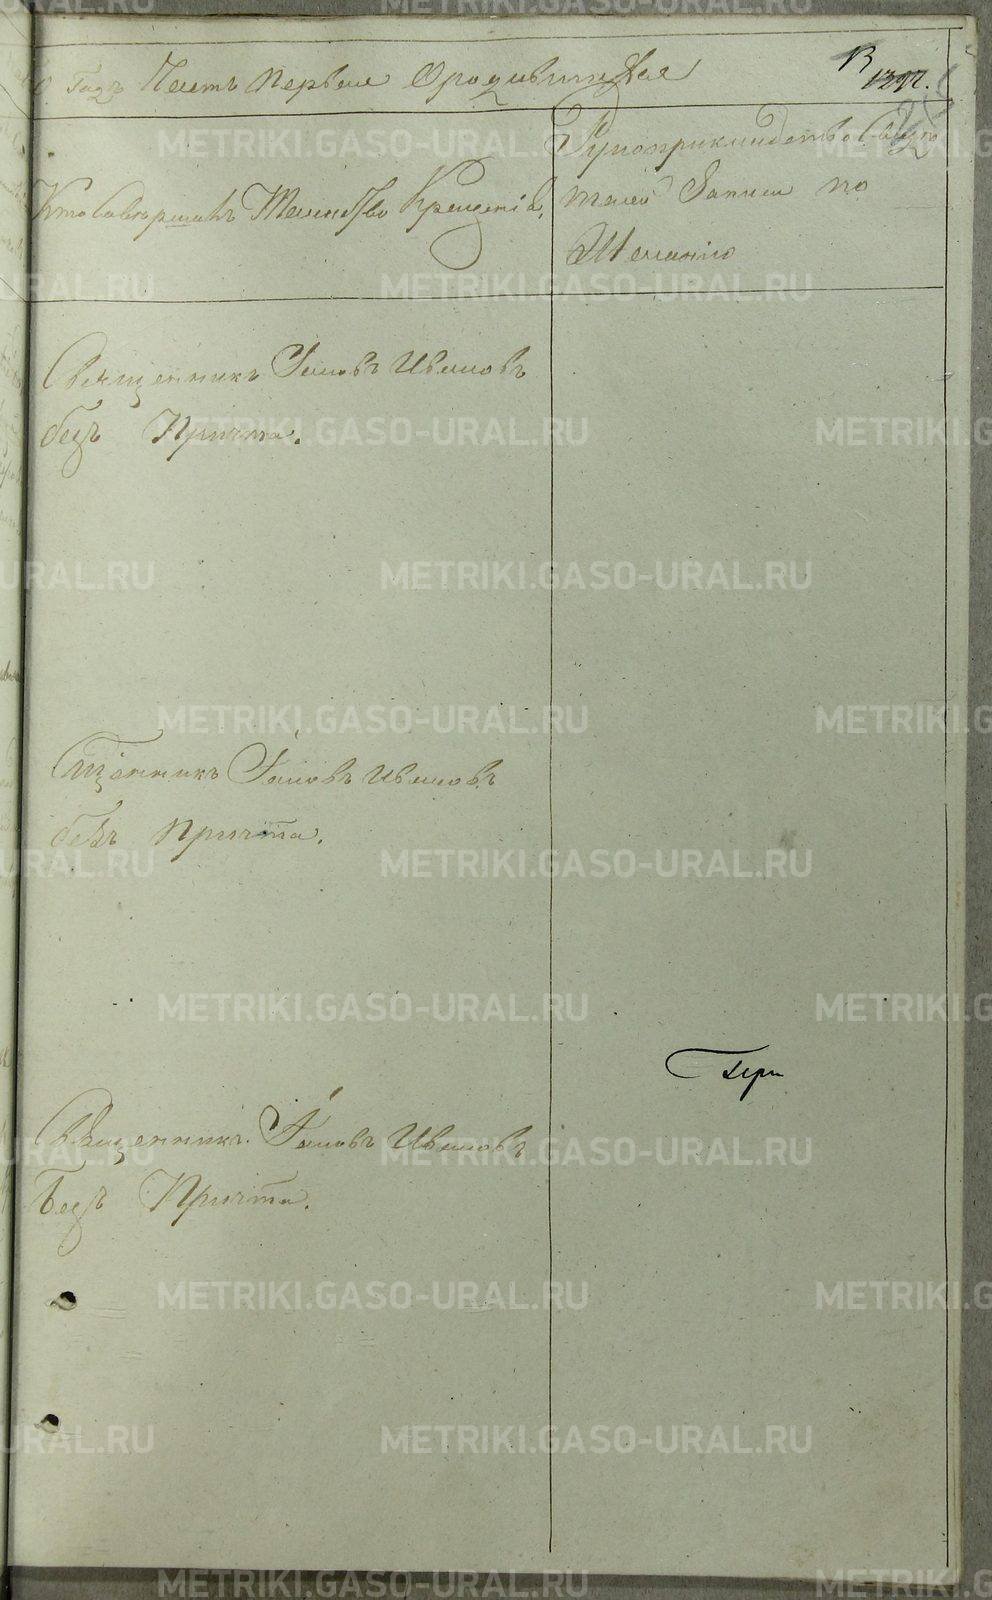 Годъ Часть первая о родившихся
1297.
Кто совершалъ Таинство Крещенія,
Рукоприкладство свидѣ
телей записи по
желанію
Священникъ Іаковъ Ивановъ
безъ Причта.
Сщенникъ Іаковъ Ивановъ
безъ Причта.
Священникъ Іаковъ Ивановъ
Безъ Причта.
METRIKI.GASO-URAL.RU